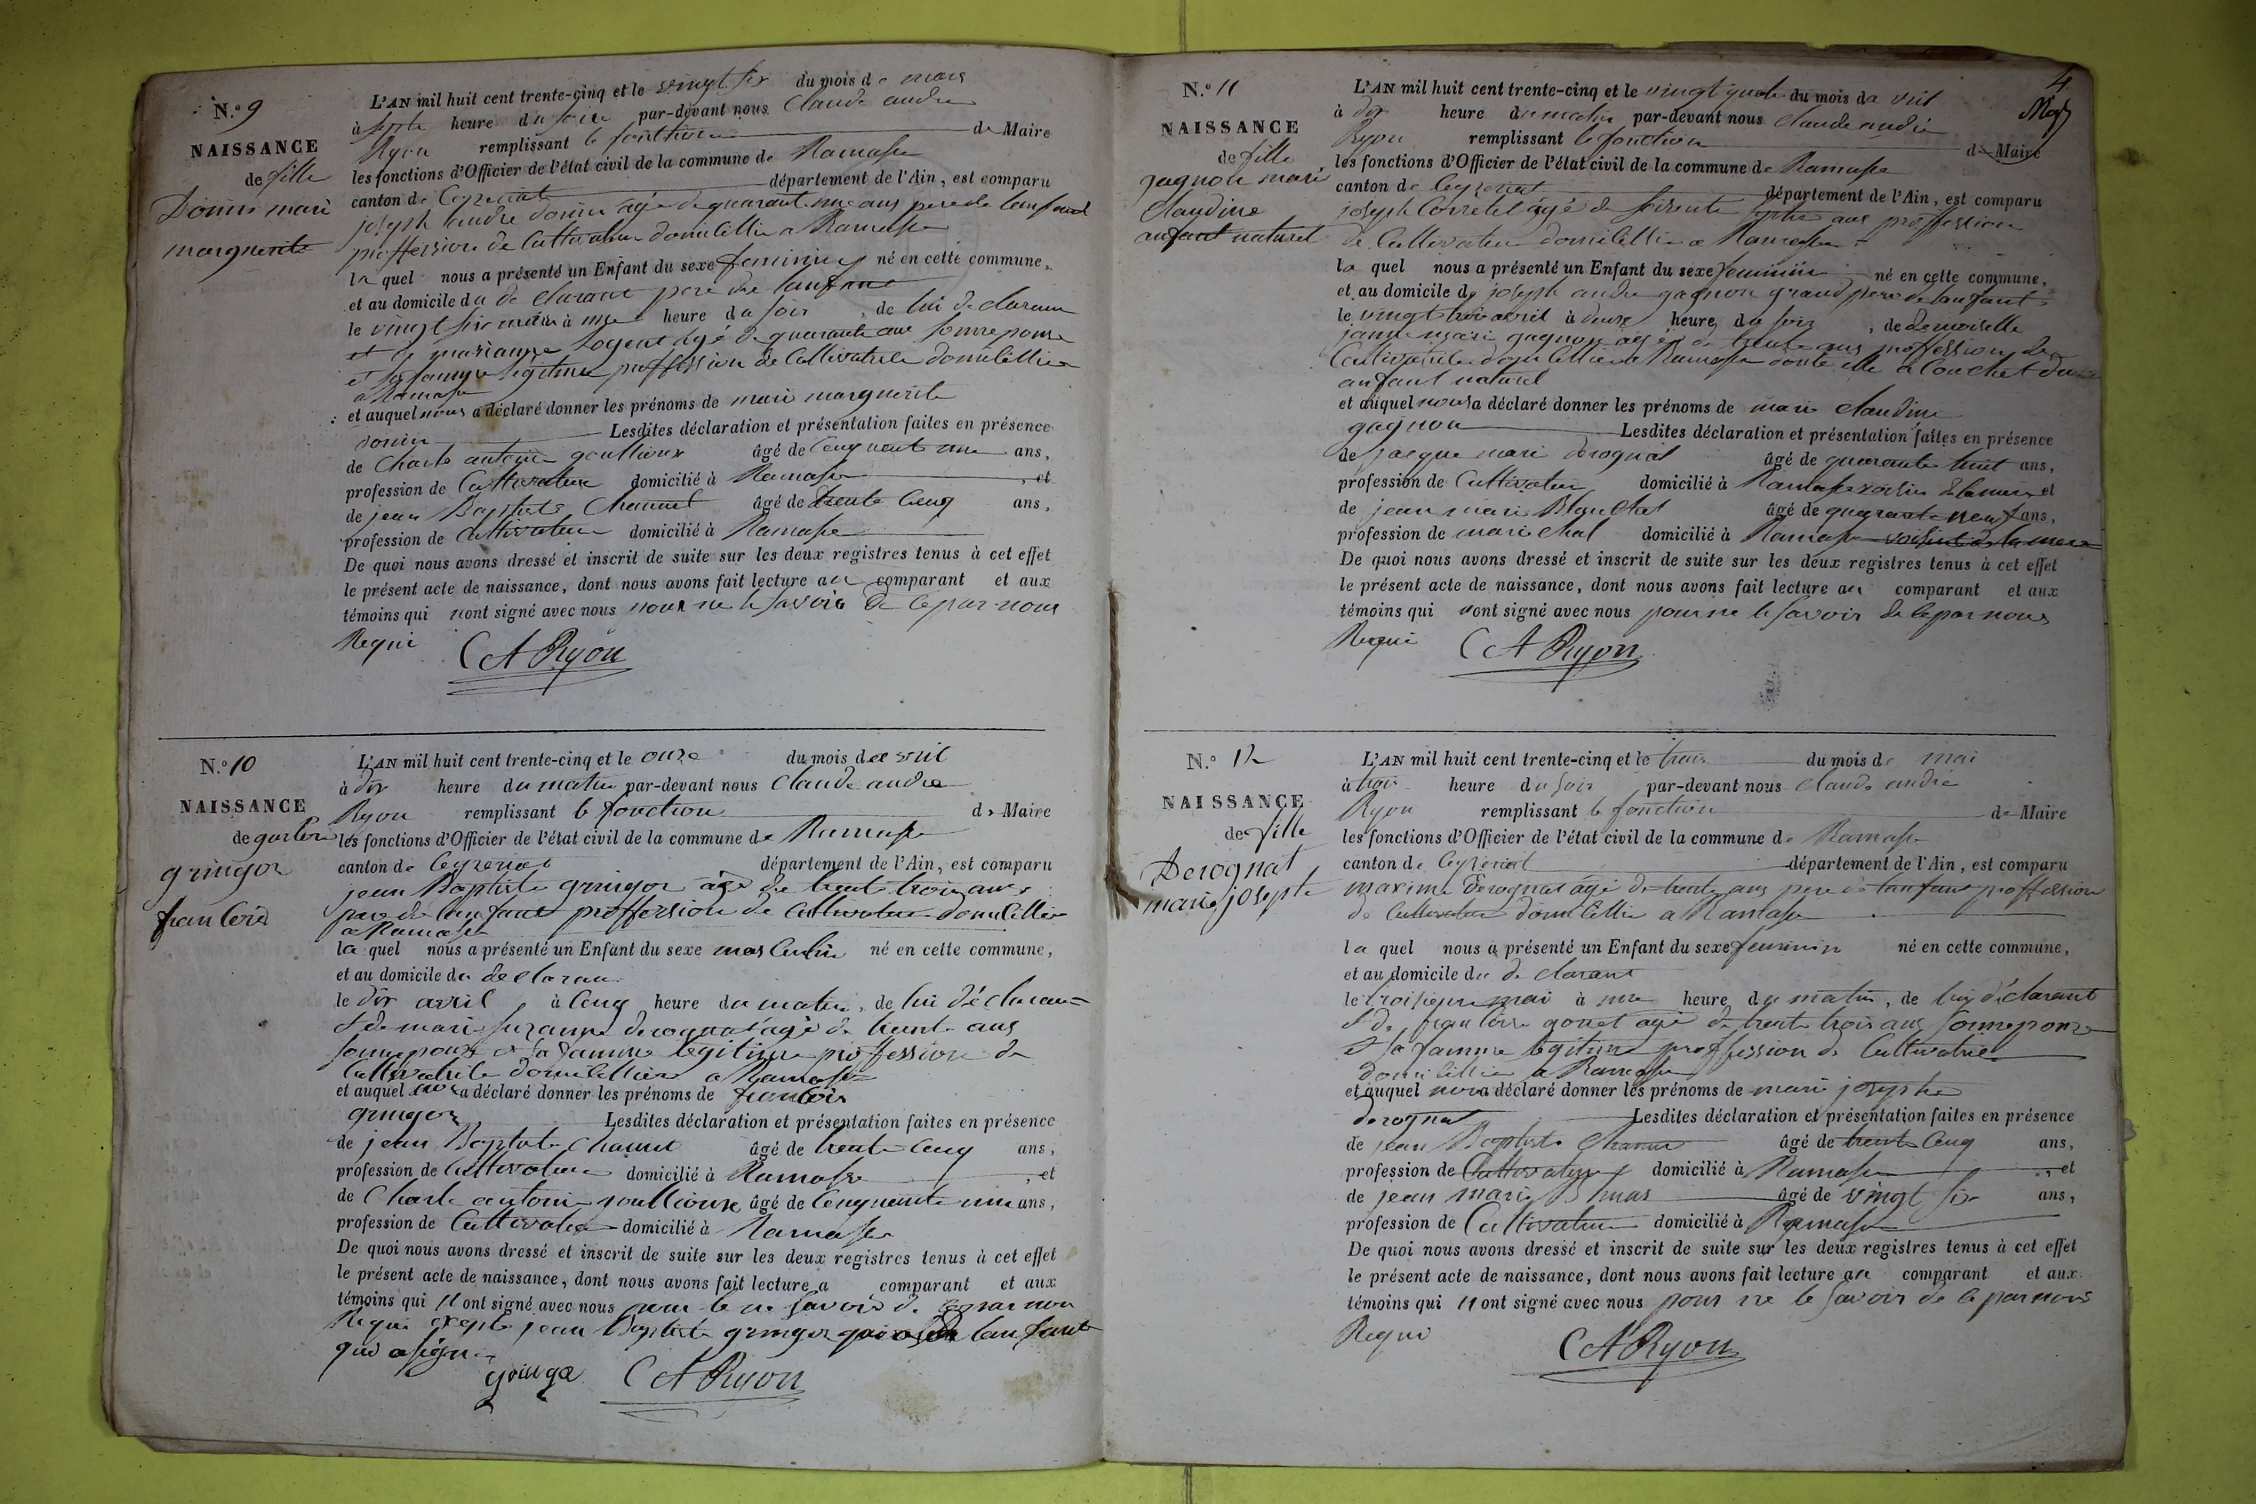 N.º 9
NAISSANCE
de fille
Donin mari
marguerite
L'AN mil huit cent trente-cinq et le vingt six du mois de mars
à sept heure du soir par-devant nous Claude andre
Ryon remplissant le fonction de Maire
les fonctions d'Officier de l'état civil de la commune de Ramasse
canton de Ceyzeriat département de l'Ain, est comparu
joseph andre donin agé de quarant une ans pere de lanfant
proffession de Cultivateur domicillie a Ramasse
le quel nous a présenté un Enfant du sexe feminin né en cette commune,
et au domicile du de clarant pere de lanfant
le vingt six mars à une heure du soir, de lui de claran
et de marianne Sogent agé de quarante ans sonne pouse
et sa famme legitime proffession de Cultivatrice domicillie
a Ramasse
et auquel nous a déclaré donner les prénoms de mari marguerite
donin Lesdites déclaration et présentation faites en présence
de Charle antoine goullioux âgé de Cenquente une ans,
profession de Cultivateur domicilié à Ramasse, et
de jean Baptiste Chanut âgé de trente Cenq ans,
profession de Cultivateur domicilié à Ramasse
De quoi nous avons dressé et inscrit de suite sur les deux registres tenus à cet effet
le présent acte de naissance, dont nous avons fait lecture au comparant et aux
témoins qui nont signé avec nous pour ne le savoir de ce par nous
Requi
C A Ryon
N.º 10
NAISSANCE
de garson
gringoz
francois
L'AN mil huit cent trente-cinq et le onze du mois da vril
à dix heure du matin par-devant nous Claude andre
Ryon remplissant le fonction de Maire
les fonctions d'Officier de l'état civil de la commune de Ramasse
canton de Ceyzeriat département de l'Ain, est comparu
jean Baptiste gringoz agé de trente trois ans
pere de lanfant proffession de Cultivateur domicillie
a Ramasse
le quel nous a présenté un Enfant du sexe masculin né en cette commune,
et au domicile du declaran
le dix avril à Cenq heure du matin, de lui déclarant
et de mari suzanne derognat agé de trente ans
sonne pouse et sa famme legitime proffession de
Cultivatrice domicillie a Ramasse
et auquel nous a déclaré donner les prénoms de francois
gringoz Lesdites déclaration et présentation faites en présence
de jean Baptiste Chanut âgé de trente Cenq ans,
profession de Cultivateur domicilié à Ramasse, et
de Charle antoine goullioux âgé de Cenquente une ans,
profession de Cultivateur domicilié à Ramasse
De quoi nous avons dressé et inscrit de suite sur les deux registres tenus à cet effet
le présent acte de naissance, dont nous avons fait lecture a comparant et aux
témoins qui nont signé avec nous pour le ne savoir de ce par nou
Requi excepte jean Baptiste gringoz lanfant
qui a signe
gringoz C A Ryon
4
N.º 11
NAISSANCE
de fille
gagnon mari
Claudine
anfant naturel
L'AN mil huit cent trente-cinq et le vingt quatre du mois da vril
à dix heure du matin par-devant nous claude andré
Ryon remplissant le fonction de Maire
les fonctions d'Officier de l'état civil de la commune de Ramasse
canton de Ceyzeriat département de l'Ain, est comparu
joseph Corretel agé de soisente ans proffession
de Cultivateur domicillie a Ramasse
le quel nous a présenté un Enfant du sexe feminin né en cette commune,
et au domicile de joseph andre gagnon grand pere de lanfant
le vingt trois avril à deuse heure du soir, de demoiselle
janne mari gagnon agé de trente ans proffession de
Cultivatrice domicillie a Ramasse donte elle a Couchet dun
anfant naturel
et auquel nous a déclaré donner les prénoms de mari claudine
gagnon Lesdites déclaration et présentation faites en présence
de jacque mari derognat âgé de quarante huit ans,
profession de Cultivateur domicilié à Ramasse voisin de la mere et
de jean mari Blanchat âgé de quarante neuf ans,
profession de marichal domicilié à Ramasse voisin de la mere
De quoi nous avons dressé et inscrit de suite sur les deux registres tenus à cet effet
le présent acte de naissance, dont nous avons fait lecture au comparant et aux
témoins qui nont signé avec nous pour ne le savoir de ce par nous
Requi
C A Ryon
N.º 12
NAISSANCE
de fille
Derognat
marie josephe
L'AN mil huit cent trente-cinq et le trois du mois de mai
à trois heure du soir par-devant nous Claude andré
Ryon remplissant le fonction de Maire
les fonctions d'Officier de l'état civil de la commune de Ramasse
canton de Ceyzeriat département de l'Ain, est comparu
maxime Derognat agé de trente ans pere de lanfant proffession
de Cultivateur domicillie a Ramasse
le quel nous a présenté un Enfant du sexe feminin né en cette commune,
et au domicile du de clarant
le troisieme mai à une heure du matin, de lui déclarant
et de francoise gonet agé de trente trois ans sonne pouze
et sa famme legitime proffession de Cultivatrice
domicillie a Ramasse
et auquel nous a déclaré donner les prénoms de mari josephe
derognat Lesdites déclaration et présentation faites en présence
de jean Baptiste Chanut âgé de trente Cenq ans,
profession de Cultivateur domicilié à Ramasse, et
de jean marie âgé de vingt six ans,
profession de Cultivateur domicilié à Ramasse
De quoi nous avons dressé et inscrit de suite sur les deux registres tenus à cet effet
le présent acte de naissance, dont nous avons fait lecture au comparant et aux
témoins qui nont signé avec nous pour ne le savoir de ce par nous
Requi
C A Ryon